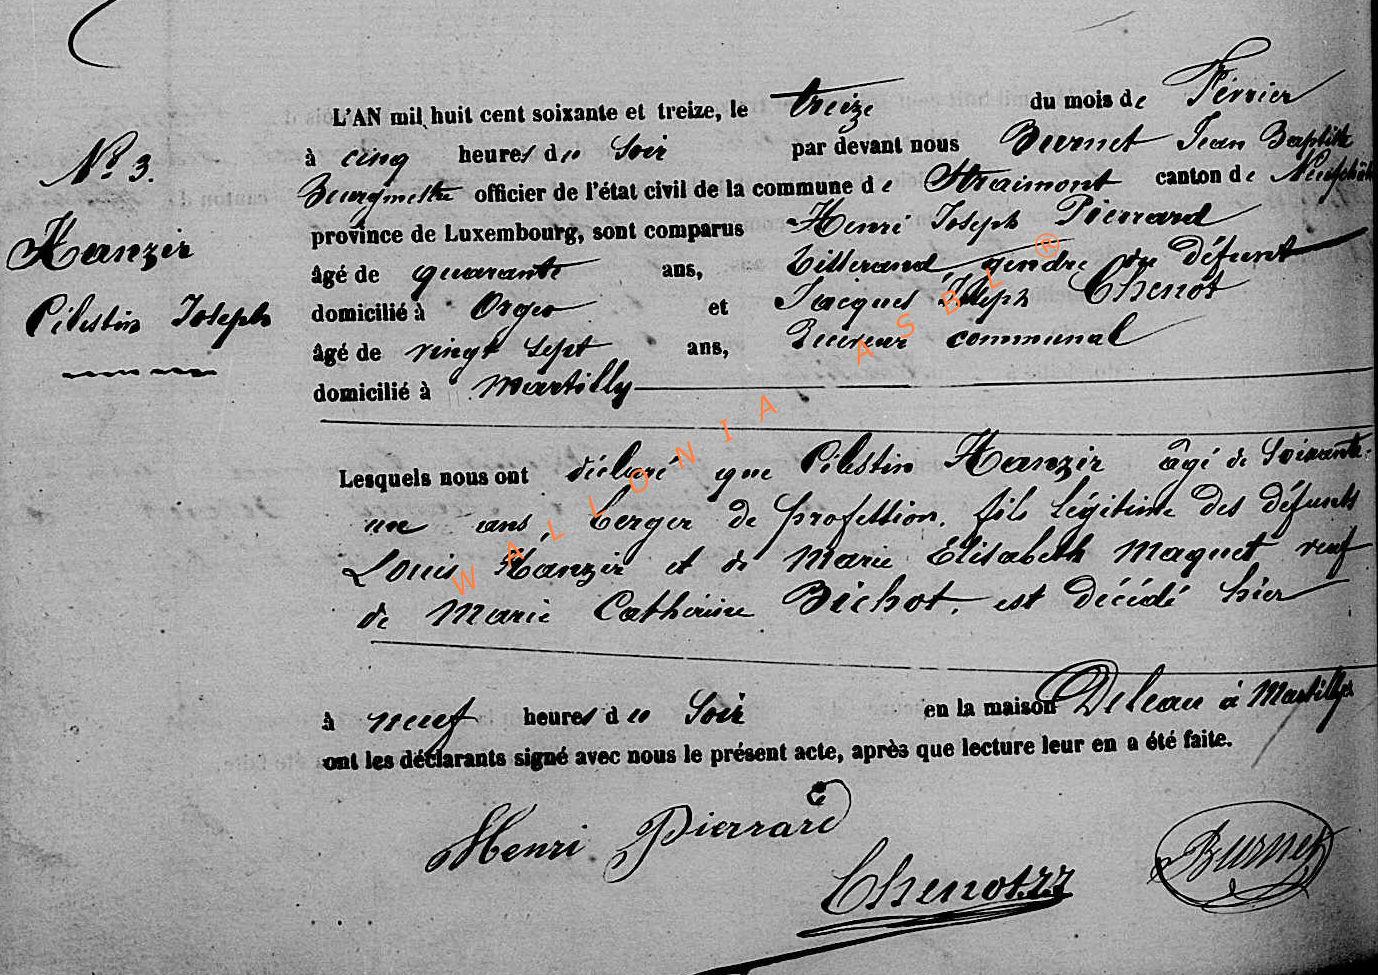 L'AN mil huit cent soixante et treize, le treize du mois de Février
N.º 3.
à cinq heures du Soir par devant nous Burnet Jean Baptiste
Bourgmestre officier de l'état civil de la commune de Straimont canton de Neufchât
Hanzir
province de Luxembourg, sont comparus Henri Joseph Pierrard
âgé de quarante ans, Tisserand, gendre du défunt
Célestin Joseph
domicilié à Orgeo et Jacques Joseph Chenot
âgé de vingt sept ans, Receveur communal
domicilié à Martilly
Lesquels nous ont déclaré que Célestin Hanzir âgé de Soixante-
un ans, berger de profession, fils légitime des défunts
Louis Hanzir et de Marie Elisabeth Maquet veuf
de Marie Catherine Bichot, est décédé hier
à neuf heures du Soir en la maison Deleau à Martilly
ont les déclarants signé avec nous le présent acte, après que lecture leur en a été faite.
Henri Pierrard
Chenot J.J.
Burnet
WALLONIA ASBL ®